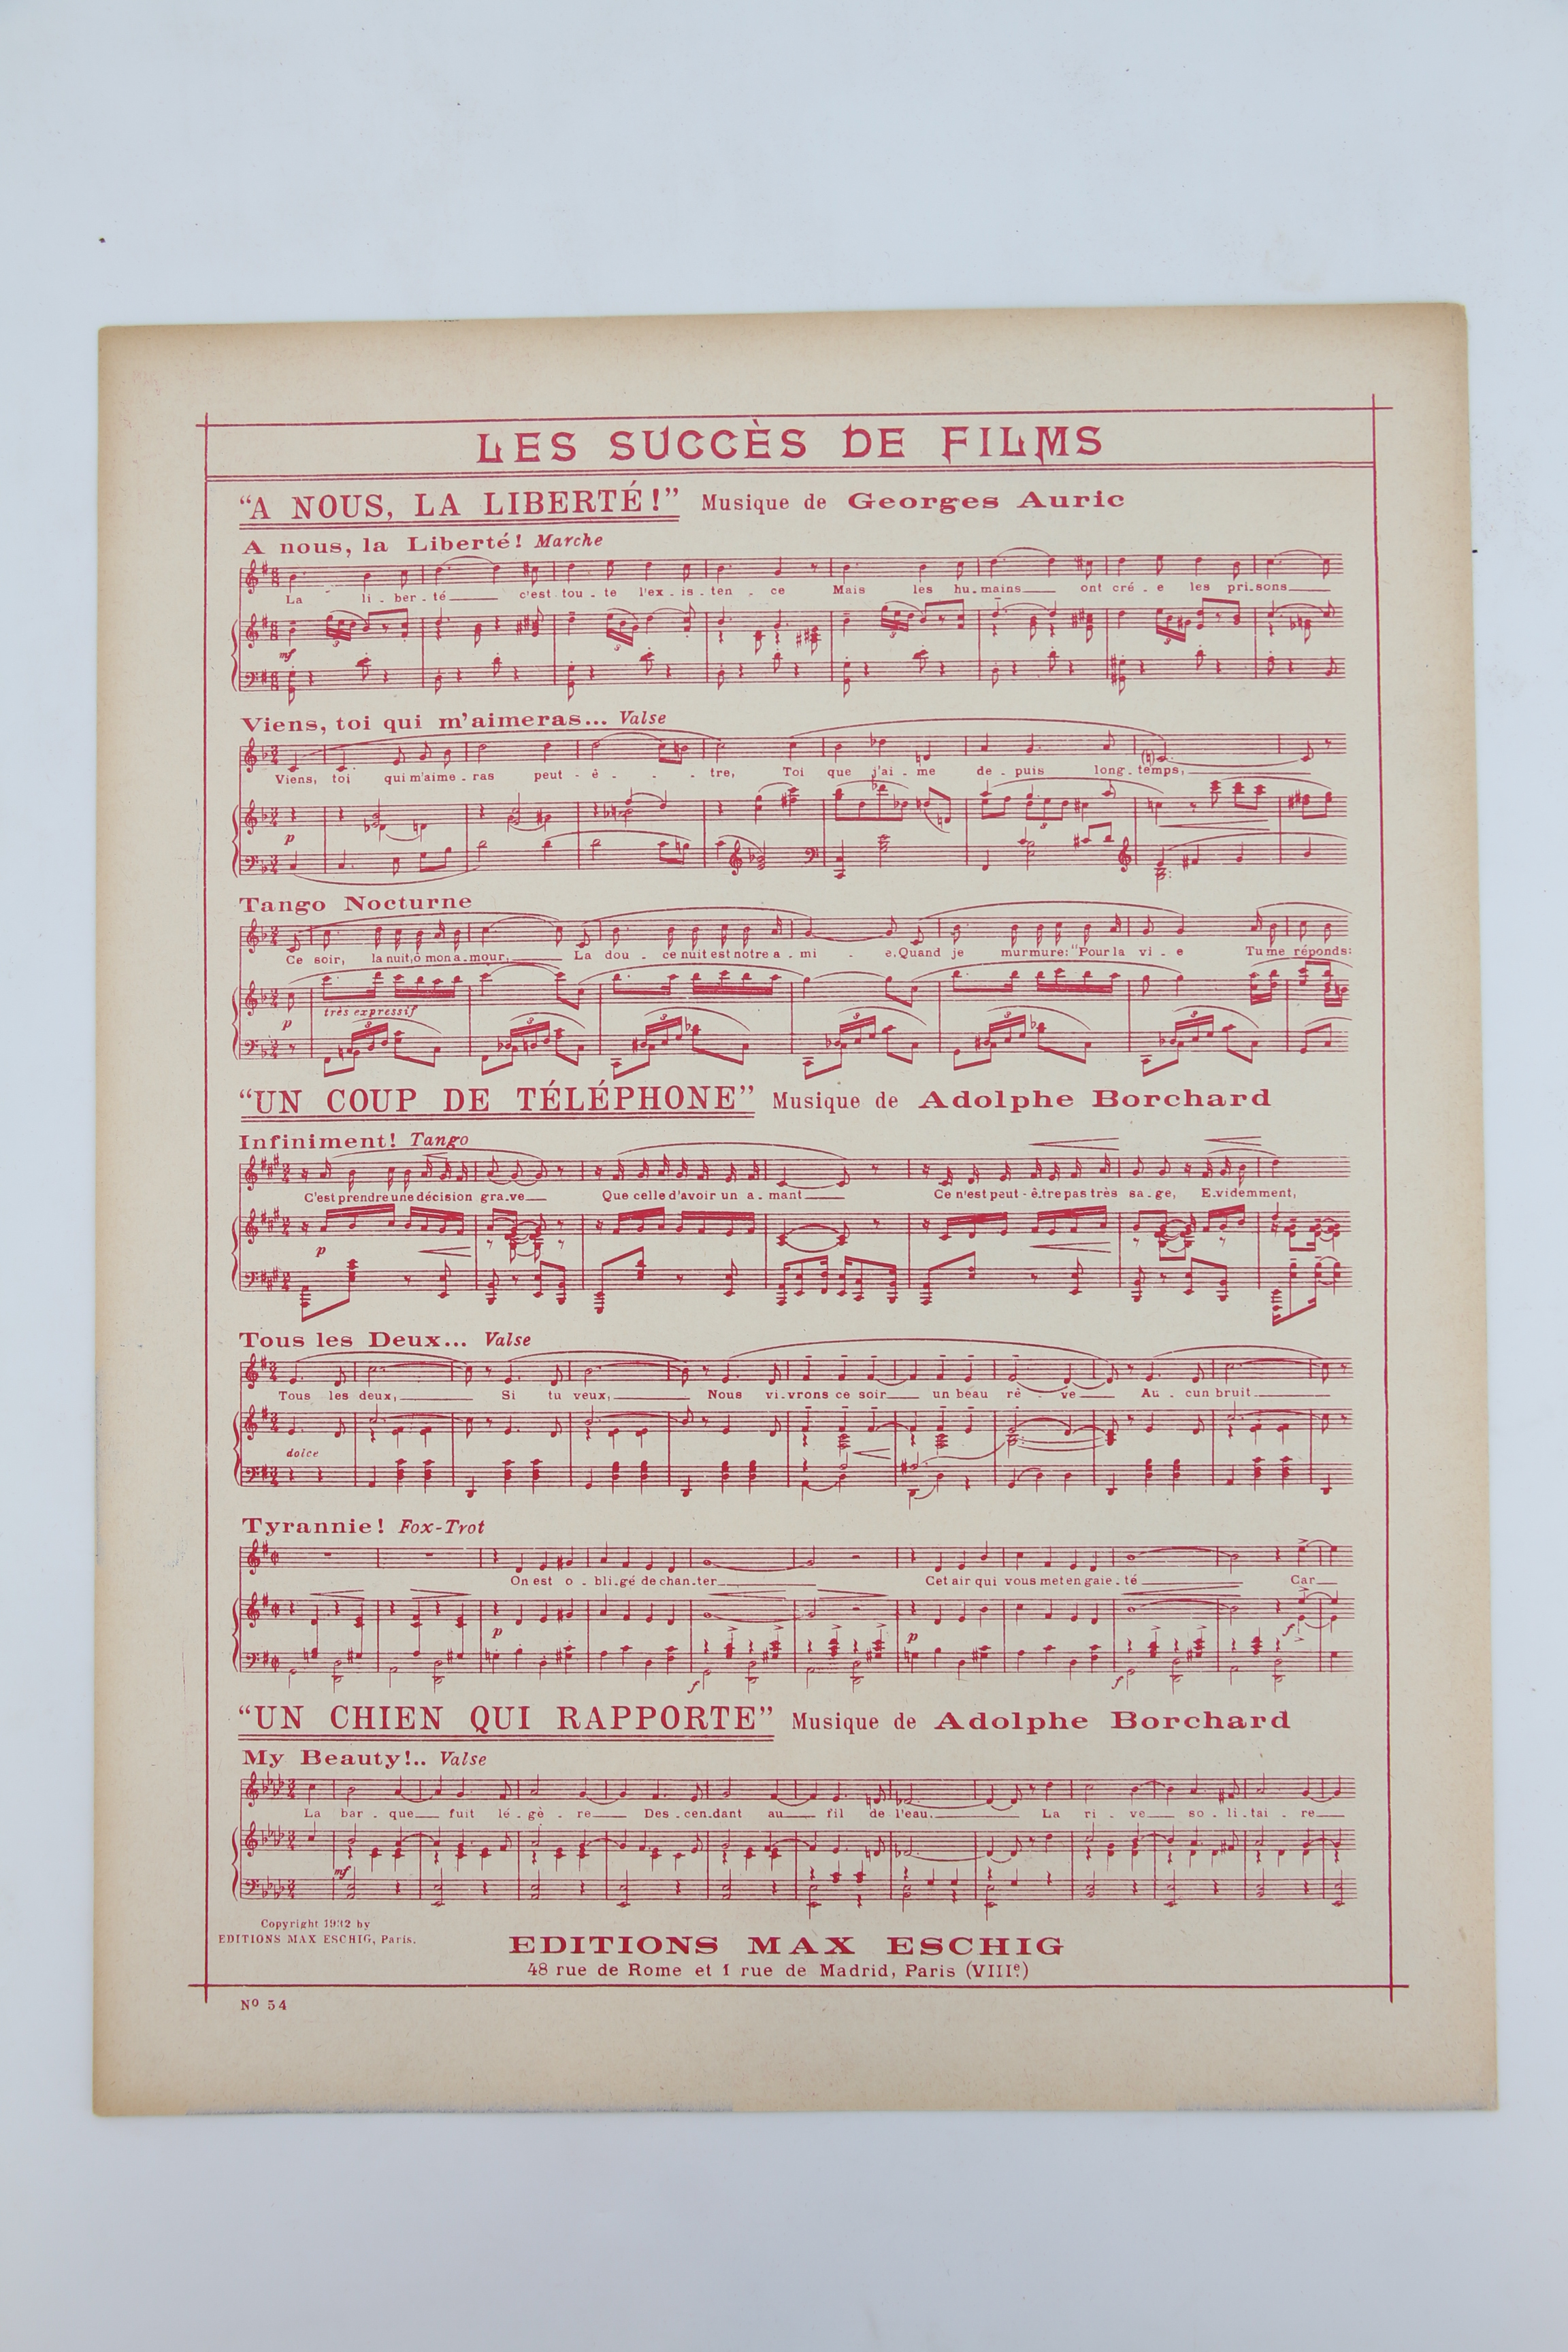 LES SUCCÈS DE FILMS
“A NOUS, LA LIBERTÉ!” Musique de Georges Auric
A nous, la Liberté! Marche
La li - ber - té c'est tou - te l'ex - is - ten - ce Mais les hu - mains ont cré - e les pri - sons
mf
Viens, toi qui m'aimeras... Valse
Viens, toi qui m'aime - ras peut - ê - - - tre, Toi que j'ai - me de - puis long - temps,
p
Tango Nocturne
Ce soir, la nuit, ô mon a - mour, La dou - ce nuit est notre a - mi - e. Quand je murmure: "Pour la vi - e Tu me réponds:
très expressif
p
“UN COUP DE TÉLÉPHONE” Musique de Adolphe Borchard
Infiniment! Tango
C'est prendre une décision gra - ve Que celle d'avoir un a - mant Ce n'est peut - ê - tre pas très sa - ge, E - videmment,
p
Tous les Deux... Valse
Tous les deux, Si tu veux, Nous vi - vrons ce soir un beau rê - ve Au - cun bruit
dolce
Tyrannie! Fox-Trot
On est o - bli - gé de chan - ter Cet air qui vous met en gaie - té Car
p p f
f f
“UN CHIEN QUI RAPPORTE” Musique de Adolphe Borchard
My Beauty!.. Valse
La bar - que fuit lé - gè - re Des - cen - dant au fil de l'eau. La ri - ve so - li - tai - re
mf
Copyright 1932 by
EDITIONS MAX ESCHIG, Paris.
EDITIONS MAX ESCHIG
48 rue de Rome et 1 rue de Madrid, Paris (VIIIe)
No 54